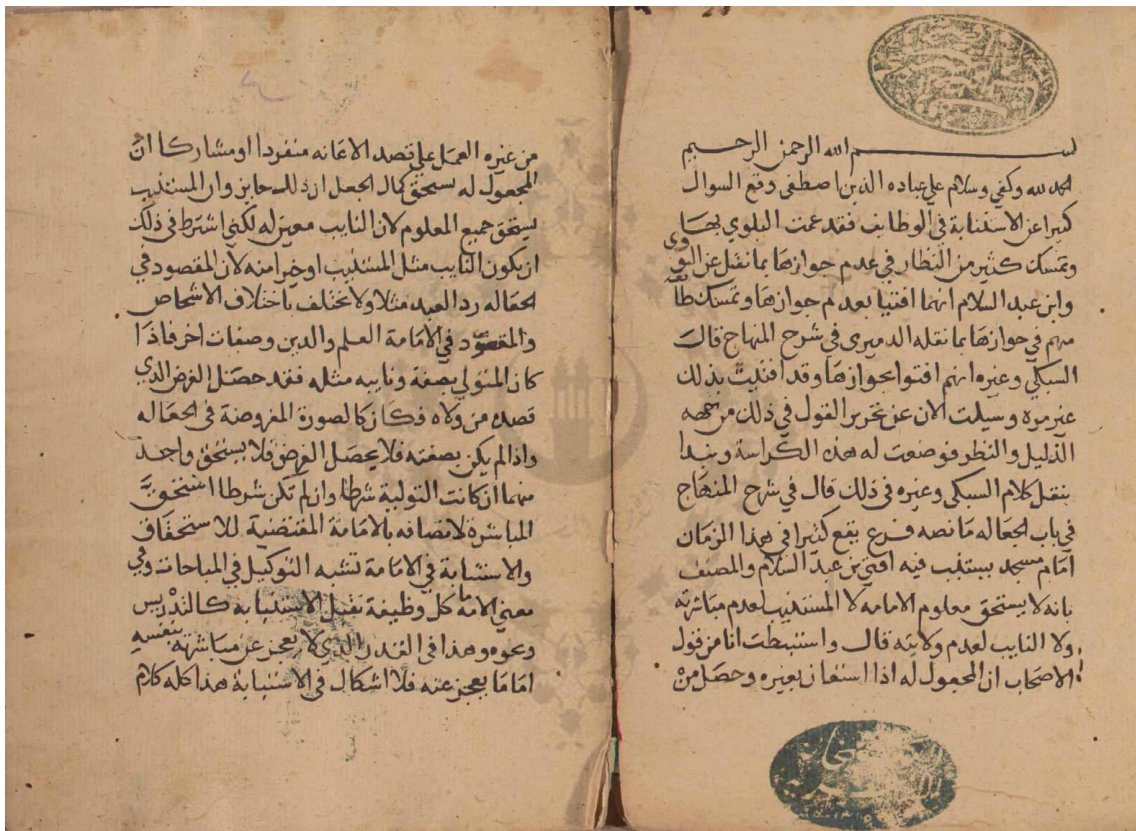 بسم الله الرحمن الرحيم
الحمد لله وكفي وسلام علي عباده الذين اصطفى وقع السوال
كثيرا عن الاستنابة في الوظايف فقد عمت البلوي بها
وتمسك كثير من النظار في عدم جوازها بما نقل عن النووي
وابن عبد السلام انهما افتيا بعدم جوازها وتمسك طائفة
منهم في جوازها بما نقله الدميرى في شرح المنهاج قال
السبكي وغيره انهم افتوا بجوازها وقد افتيت بذلك
غير مره وسيلت الان عن تحرير القول في ذلك من جهه
الدليل والنظر فوضعت له هذه الكراسة ونبدا
بنقل كلام السبكي وغيره في ذلك قال في شرح المنهاج
في باب الجعاله مانصه فرع يقع كثيرا في هذا الزمان
امام مسجد يستنيب فيه افتي بن عبد السلام والمصنف
بانه لا يستحق معلوم الامامه لا المستنيب لعدم مباشرته
ولا النايب لعدم ولايته قال واستنبطت انا من قول
الاصحاب ان المجعول له اذا استعان بغيره وحصل من
من غيره العمل علي قصد الاعانه منفردا او مشاركا ان
المجعول له يستحق كمال الجعل ان ذلك جايز وان المستنيب
يستحق جميع المعلوم لان النايب معين له لكني اشترط في ذلك
ان يكون النايب مثل المستنيب او خيرا منه لان المقصود في
الجعاله رد العبد مثلا ولا يختلف باختلاف الاشخاص
والمقصود في الامامة العلم والدين وصفات اخر فاذا
كان المتولي بصفة ونايبه مثله فقد حصل الغرض الذي
قصده من ولاه فكان كالصورة المفروضة في الجعاله
واذا لم يكن بصفته فلا يحصل الغرض فلا يستحق واحد
منهما ان كانت التولية شرطا وان لم تكن شرطا استحق
المباشرة لاتصافه بالامامة المقتضية للاستحقاق
والاستنابة في الامامة تشبه التوكيل في المباحات وفي
معني الامامة كل وظيفة تقبل الاستنابه كالتدريس
ونحوه وهذا في القدر الذي لا يعجز عن مباشرته بنفسه
اما ما يعجز عنه فلا اشكال في الاستنابة هذا كله كلام